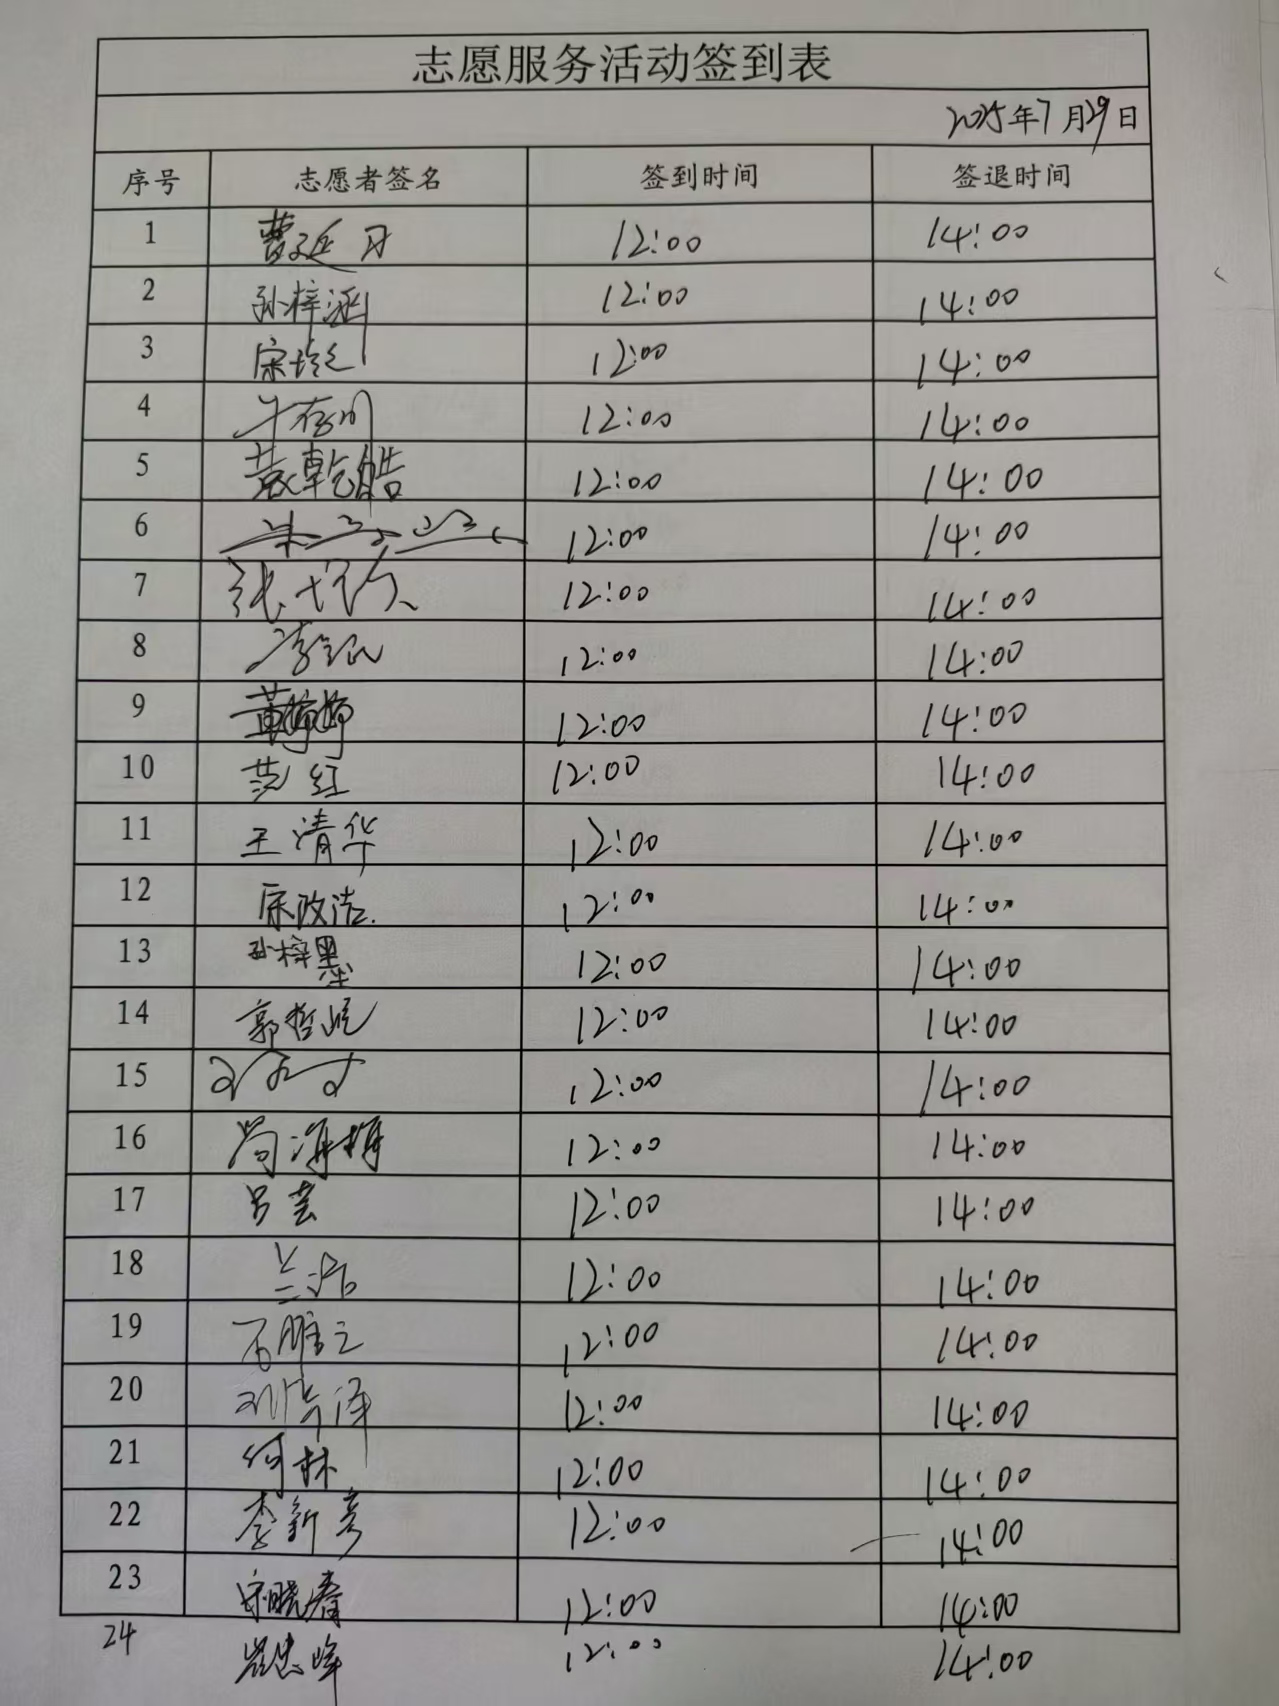 志愿服务活动签到表
2025年7月29日
序号 志愿者签名 签到时间 签退时间
1 曹延月 12:00 14:00
2 孙梓涵 12:00 14:00
3 12:00 14:00
4 12:00 14:00
5 袁乾皓 12:00 14:00
6 12:00 14:00
7 12:00 14:00
8 12:00 14:00
9 黄婷婷 12:00 14:00
10 范红 12:00 14:00
11 王清华 12:00 14:00
12 宋改洁 12:00 14:00
13 孙梓墨 12:00 14:00
14 郭哲 12:00 14:00
15 12:00 14:00
16 尚海梅 12:00 14:00
17 吕芸 12:00 14:00
18 12:00 14:00
19 12:00 14:00
20 12:00 14:00
21 何林 12:00 14:00
22 李新彦 12:00 14:00
23 宋晓春 12:00 14:00
24 12:00 14:00